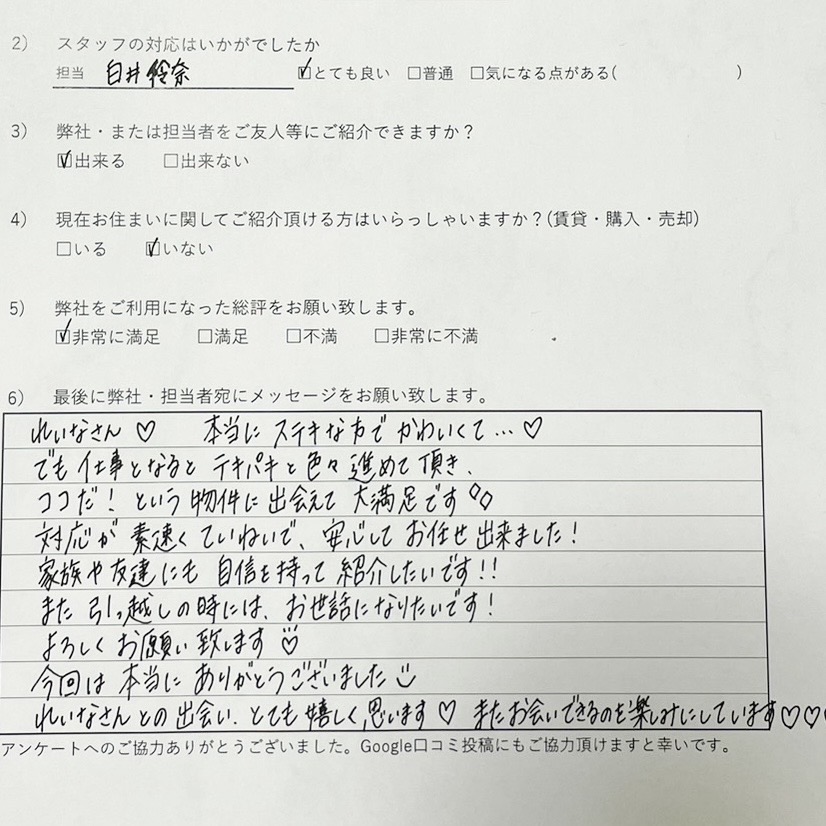 2) スタッフの対応はいかがでしたか
担当 白井伶奈 ☑とても良い □普通 □気になる点がある( )
3) 弊社・または担当者をご友人等にご紹介できますか？
☑出来る □出来ない
4) 現在お住まいに関してご紹介頂ける方はいらっしゃいますか？(賃貸・購入・売却)
□いる ☑いない
5) 弊社をご利用になった総評をお願い致します。
☑非常に満足 □満足 □不満 □非常に不満
6) 最後に弊社・担当者宛にメッセージをお願い致します。
れいなさん♡ 本当にステキな方でかわいくて…♡
でも仕事となるとテキパキと色々進めて頂き、
ココだ！という物件に出会えて大満足です◇◇
対応が素速くていねいで、安心してお任せ出来ました！
家族や友達にも自信を持って紹介したいです!!
また引っ越しの時には、お世話になりたいです！
よろしくお願い致します
今回は本当にありがとうございました
れいなさんとの出会い、とても嬉しく思います♡ またお会いできるのを楽しみにしています♡♡♡
アンケートへのご協力ありがとうございました。Google口コミ投稿にもご協力頂けますと幸いです。